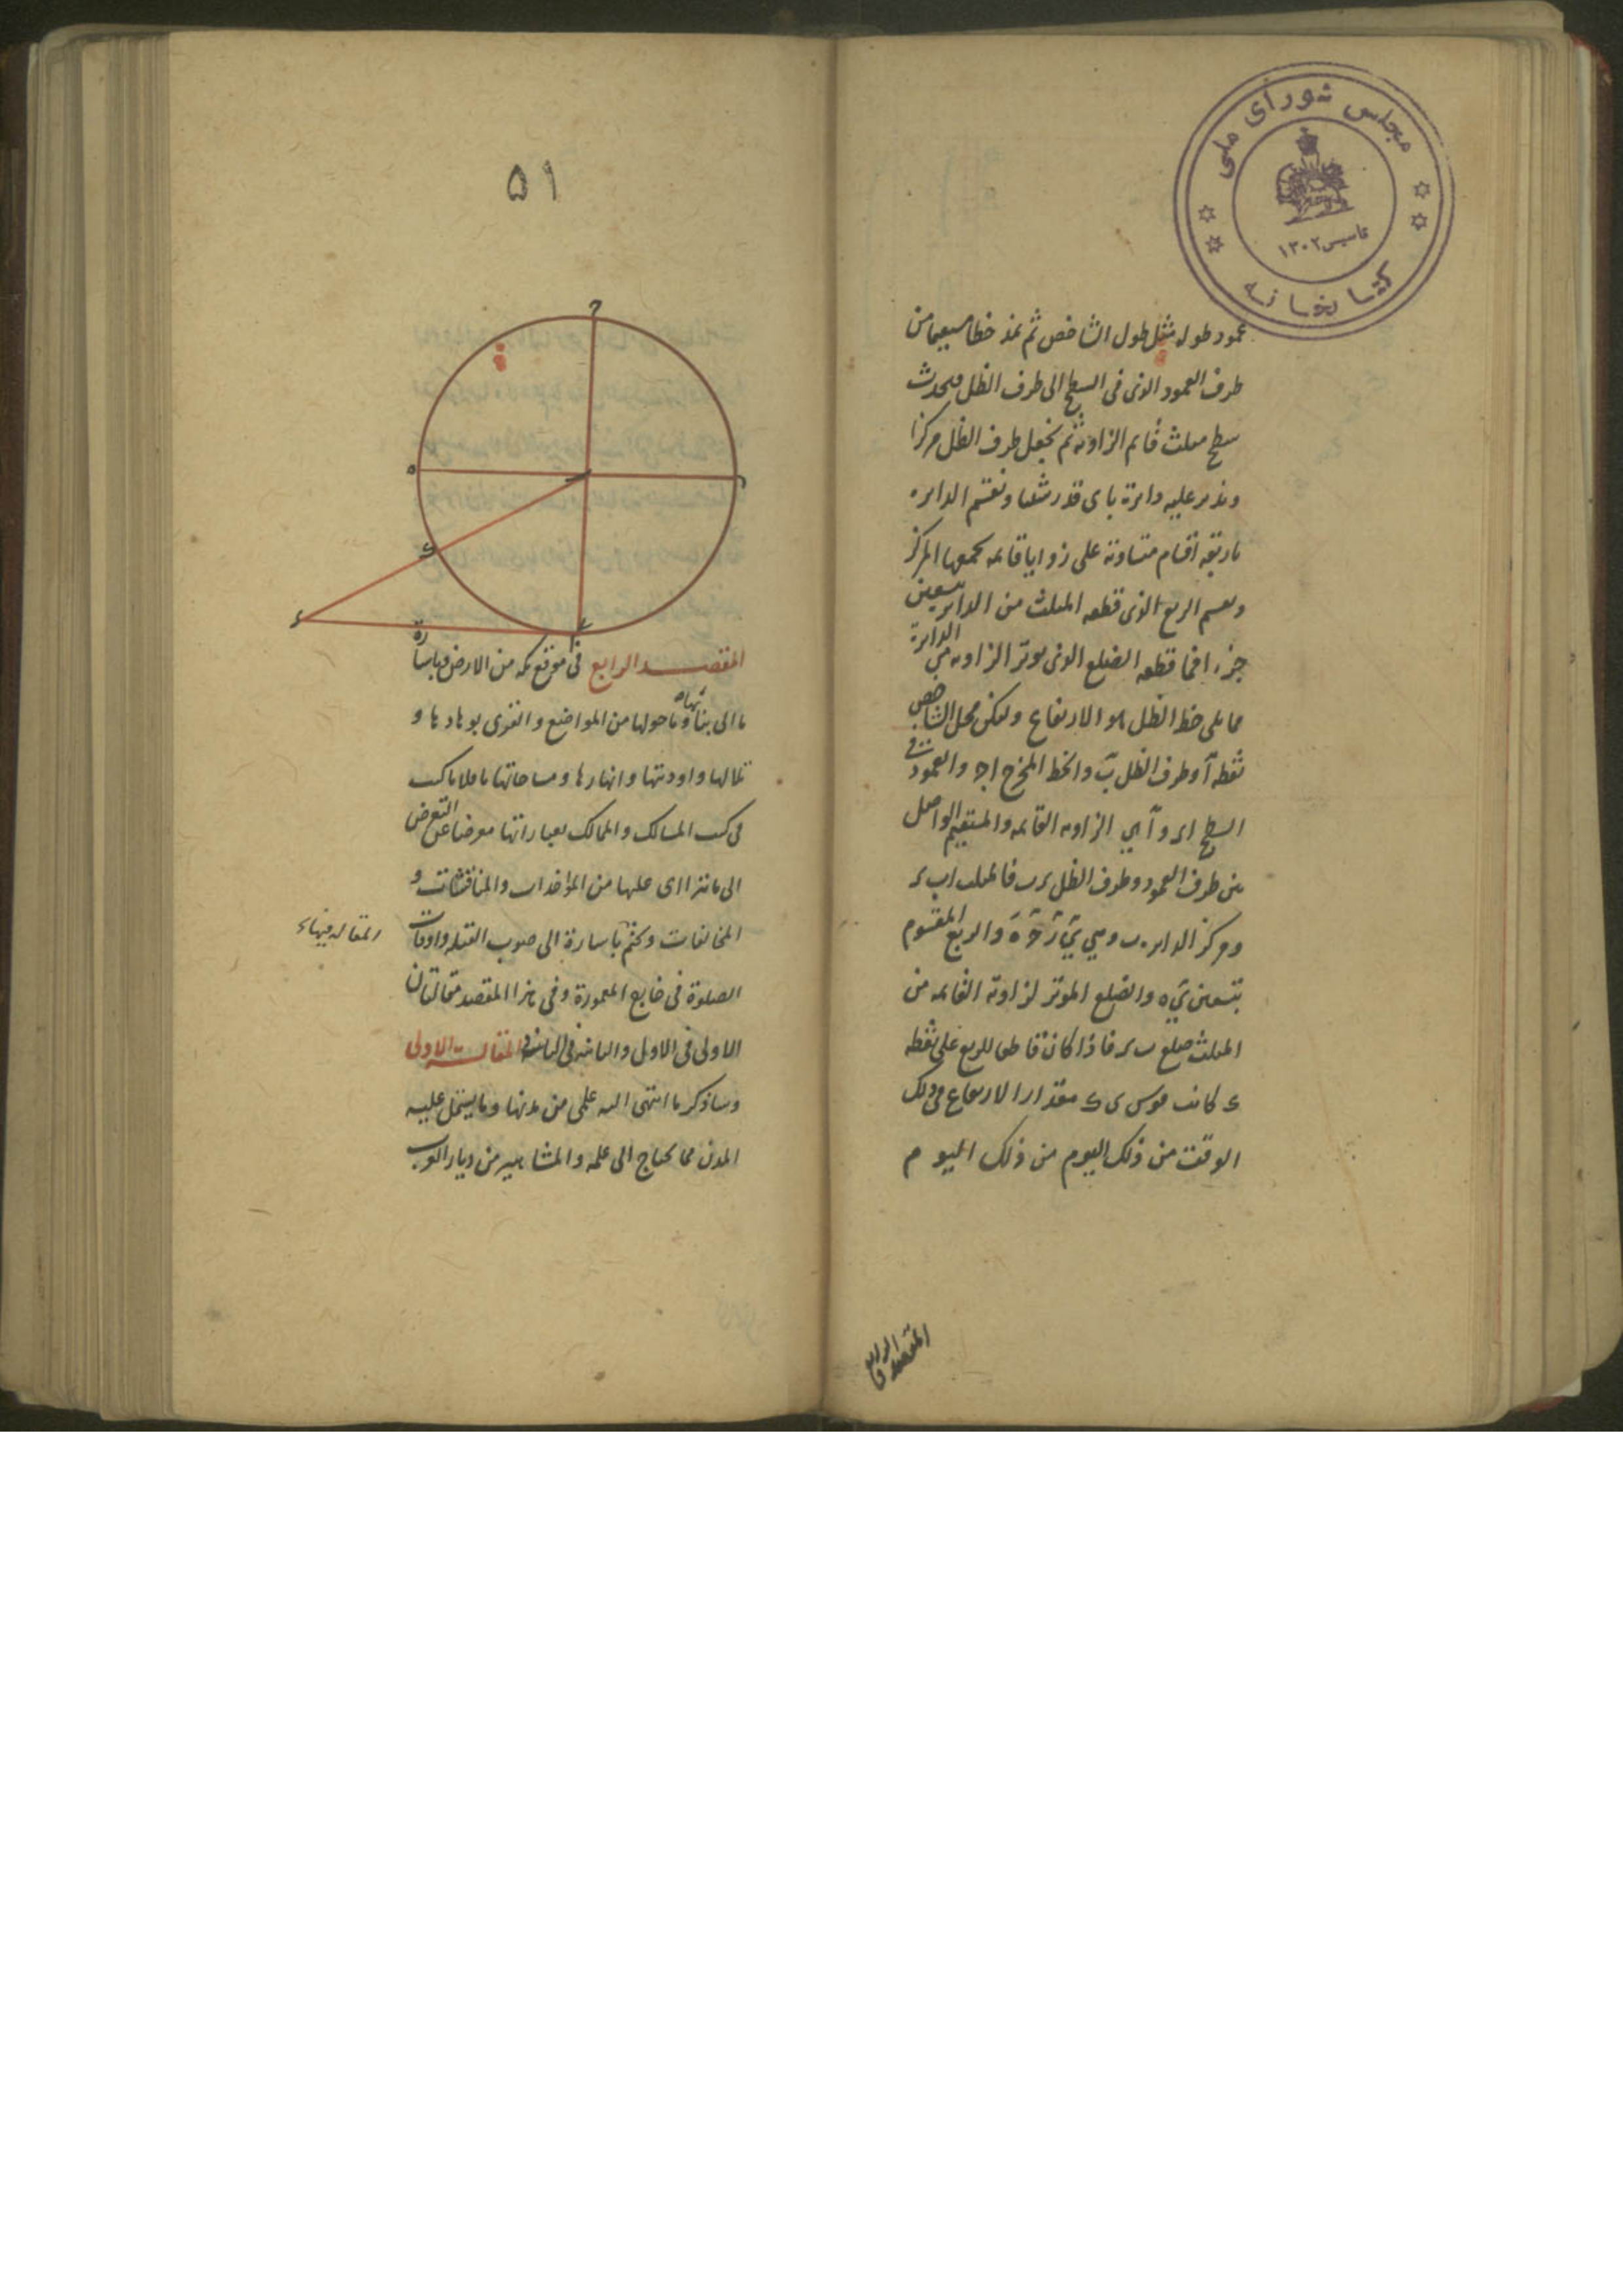 مجلس شورای ملی
تاسیس ۱۳۰۲
کتابخانه
عمود طوله مثل طول الشاخص ثم نمد خطا مستقیما من
طرف العمود الذی فی السطح الی طرف الظل فیحدث
سطح مثلث قایم الزاویة ثم نجعل طرف الظل مرکزا
وندیر علیه دایرة بای قدر شئنا ونقسم الدایره
باربعة اقسام متساویة علی زوایا قایمه یجمعها المرکز
ونقسم الربع الذی قطعه المثلث من الدایر بتسعین
جزءا فما قطعه الضلع الذی یوتر الزاویه من الدایرة
مما یلی خط الظل هو الارتفاع ولیکن محل الشاخص
نقطه آ وطرف الظل ب والخط المخرج اج والعمود فی
السطح والزاویه القایمه والمستقیم الواصل
بین طرف العمود وطرف الظل فالمثلث
ومرکز الدایره ب وهی والربع المقسوم
بتسعین والضلع الموتر لزاویة القایمه من
المثلث ضلع فاذا کان قاطعا للربع علی نقطه
کانت قوس مقدار الارتفاع فی ذلک
الوقت من ذلک الیوم من ذلک الیوم
المقصد الرابع فی
۵۱
المقصد الرابع فی موقع مکه من الارض وباشارة
ما الی بنائها وما حولها من المواضع والقری بوهادها و
تلالها واودیتها وانهارها ومساحاتها ناقلا ما کتب
فی کتب المسالک والممالک بعباراتها معرضا عن التعرض
الی ما یترااى علیها من المؤاخذات والمناقشات و
المخالفات ونختم باشارة الی صوب القبله واوقات
الصلوة فی بقاع المعمورة وفی هذا المقصد مقالتان
الاولی فی الاول والثانیة فی الثانی المقالة الاولی
وساذکر ما انتهی الیه علمی من مدنها وما یشتمل علیه
المدن مما یحتاج الی علمه والمشاهیر من دیار العرب